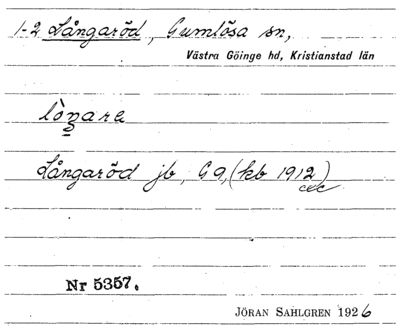 1-2 Långaröd, Gumlösa sn,
Västra Göinge hd, Kristianstad län
lòṉara
Långaröd jb, G 9, (kb 1912)
Nr 5357.
JÖRAN SAHLGREN 1926